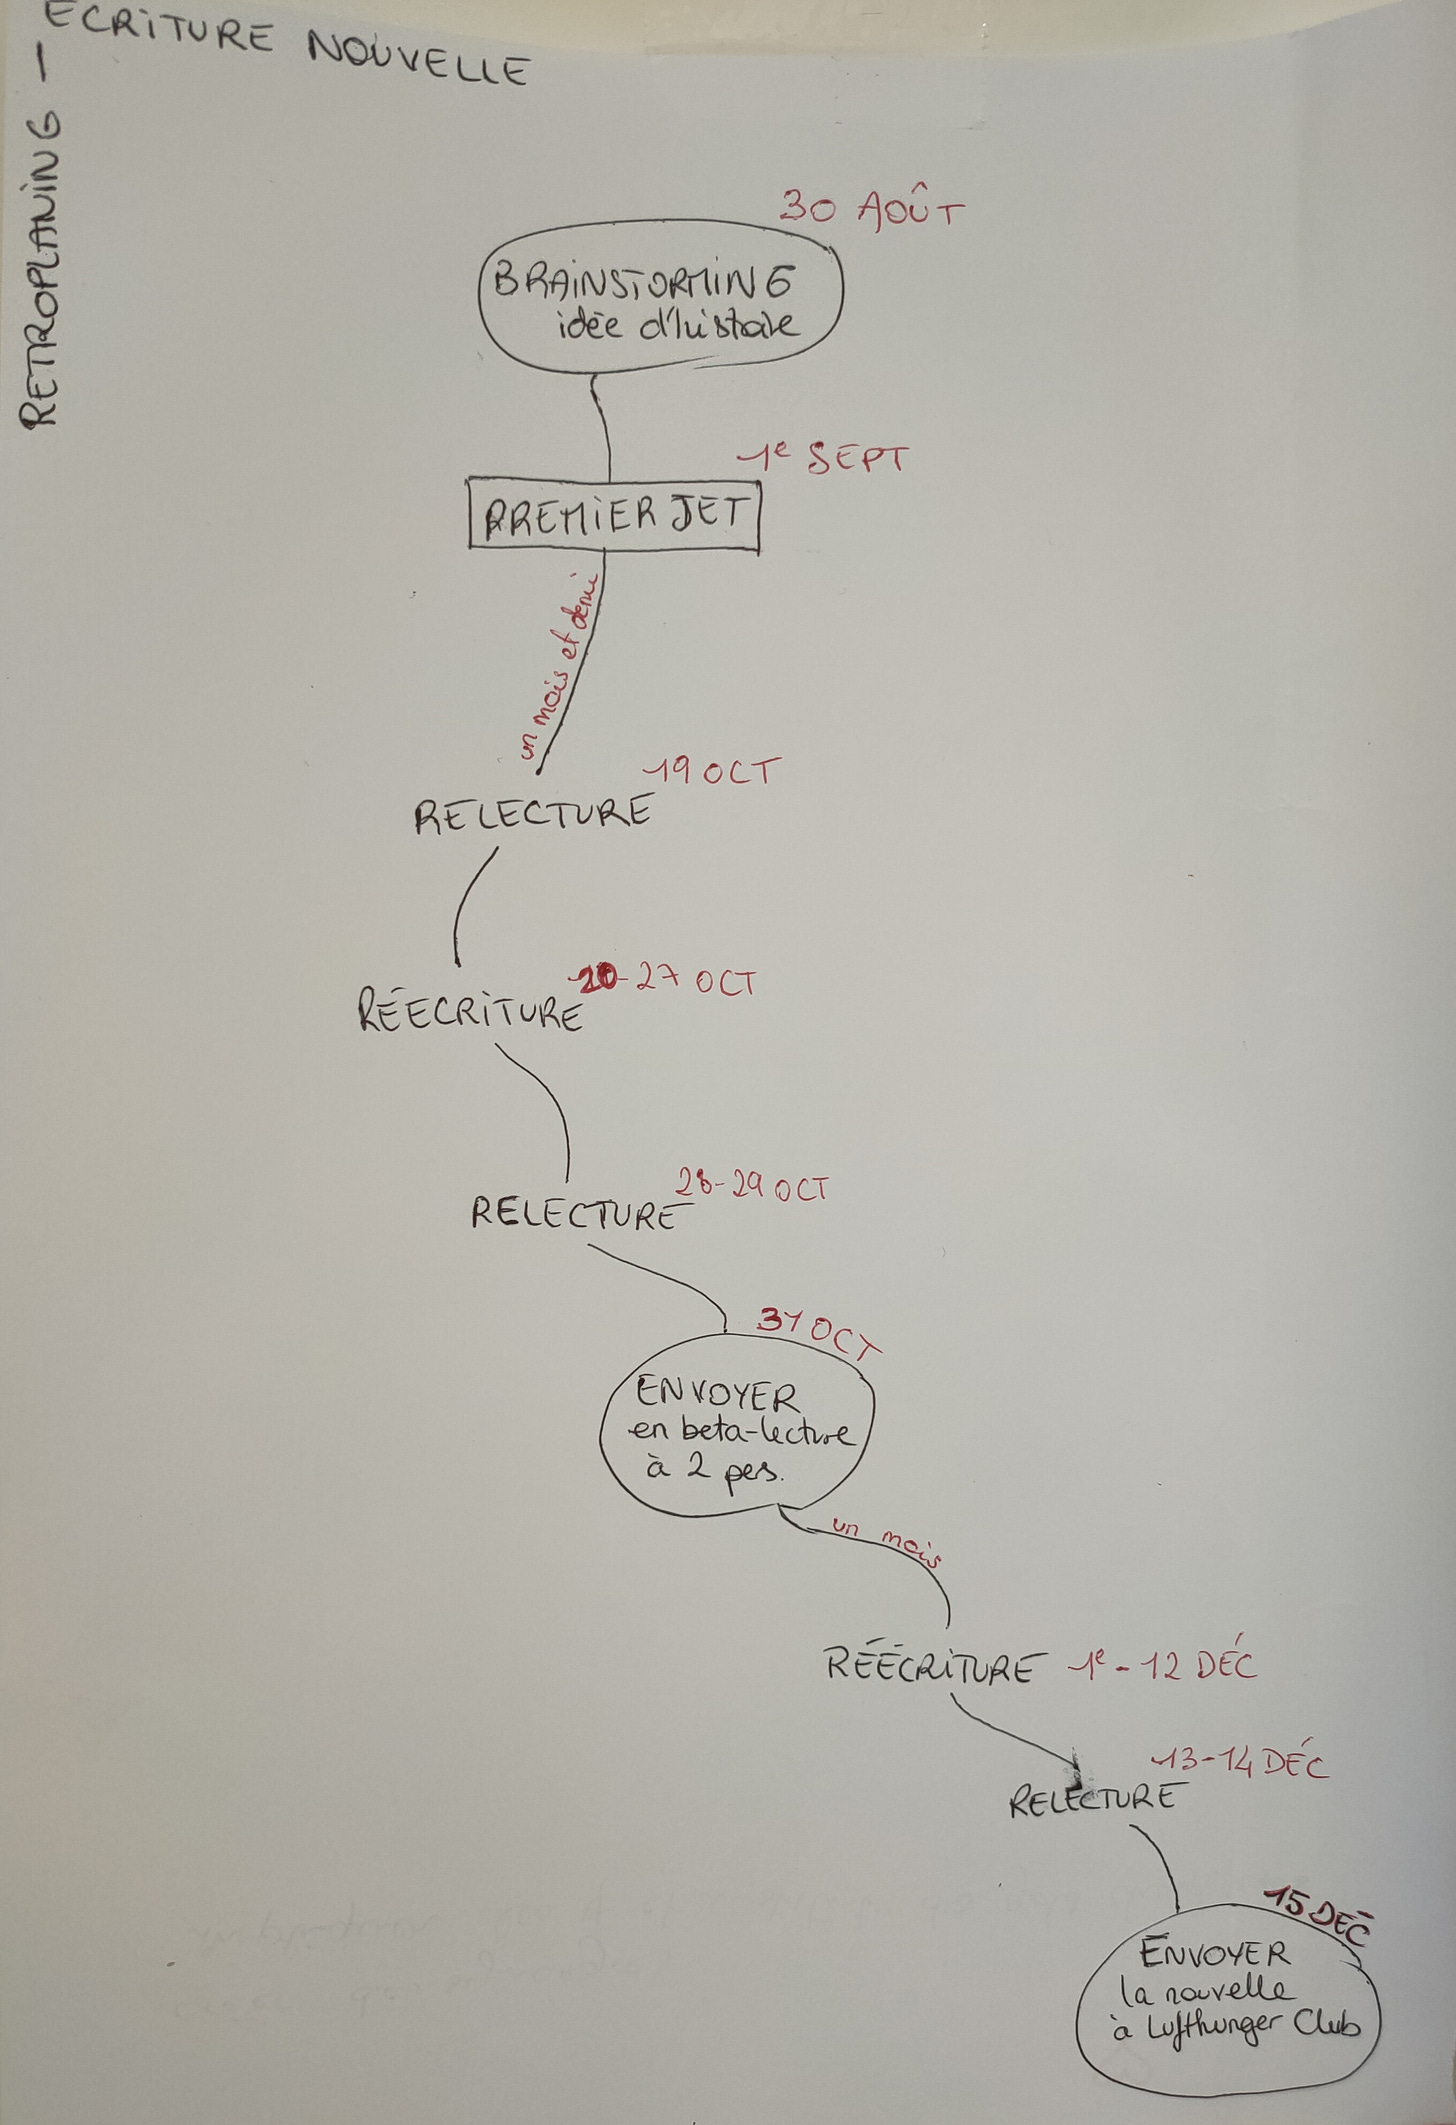 RETROPLANING -
ECRITURE NOUVELLE
30 AOÛT
BRAINSTORMING
idée d'histoire
1e SEPT
PREMIER JET
un mois et demi
19 OCT
RELECTURE
20-27 OCT
RÉECRITURE
28-29 OCT
RELECTURE
31 OCT
ENVOYER
en beta-lecture
à 2 pers.
un mois
RÉÉCRITURE 1e - 12 DÉC
13-14 DÉC
RELECTURE
15 DÉC
ENVOYER
la nouvelle
à Lufthunger Club